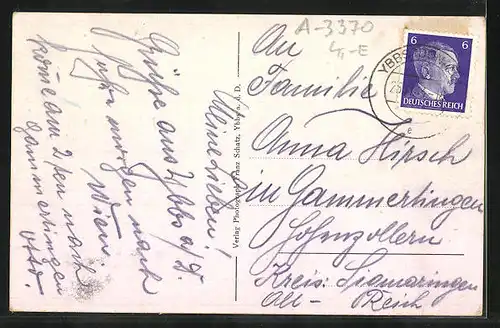 Meine Lieben!
Grüße aus Ybbs a/D.
fahre morgen nach
Wien.
komme am 2ten nach
Gammertingen
Otto.
Verlag Photograph Franz Schatz, Ybbs a. d. D.
A-3370
4,-E
6 6
DEUTSCHES REICH
YBBS
e
An
Familie
Anna Hirsch
in Gammertingen
Hohenzollern
Kreis: Sigmaringen
Alt- Reich